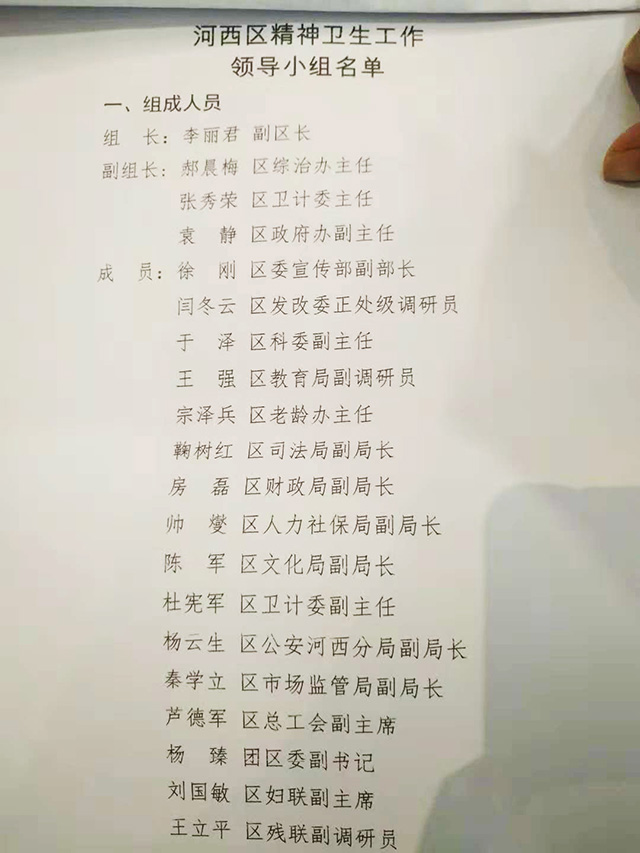 河西区精神卫生工作
领导小组名单
一、组成人员
组　长：李丽君 副区长
副组长：郝晨梅 区综治办主任
张秀荣 区卫计委主任
袁　静 区政府办副主任
成　员：徐　刚 区委宣传部副部长
闫冬云 区发改委正处级调研员
于　泽 区科委副主任
王　强 区教育局副调研员
宗泽兵 区老龄办主任
鞠树红 区司法局副局长
房　磊 区财政局副局长
帅　燮 区人力社保局副局长
陈　军 区文化局副局长
杜宪军 区卫计委副主任
杨云生 区公安河西分局副局长
秦学立 区市场监管局副局长
芦德军 区总工会副主席
杨　臻 团区委副书记
刘国敏 区妇联副主席
王立平 区残联副调研员